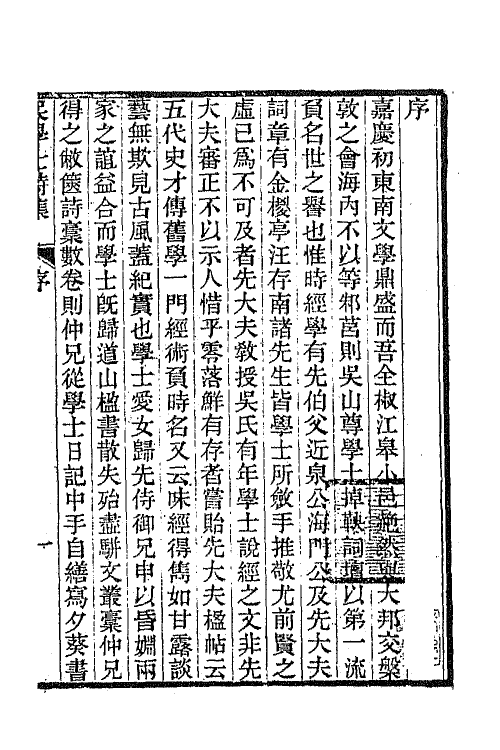 序
嘉慶初東南文學鼎盛而吾全椒江皋小邑絶與大邦交槃
敦之會海內不以等邾莒則吳山尊學士掉鞅詞壇以第一流
負名世之譽也惟時經學有先伯父近泉公海門公及先大夫
詞章有金椶亭汪存南諸先生皆學士所斂手推敬尤前賢之
虛已爲不可及者先大夫敎授吳氏有年學士說經之文非先
大夫審正不以示人惜乎零落鮮有存者嘗貽先大夫楹帖云
五代史才傳舊學一門經術負時名又云味經得雋如甘露談
藝無欺見古風蓋紀實也學士愛女歸先侍御兄申以昏婣兩
家之誼益合而學士旣歸道山楹書散失殆盡駢文叢稾仲兄
得之敝篋詩稾數卷則仲兄從學士日記中手自繕寫夕葵書
吳學士詩集
序
一